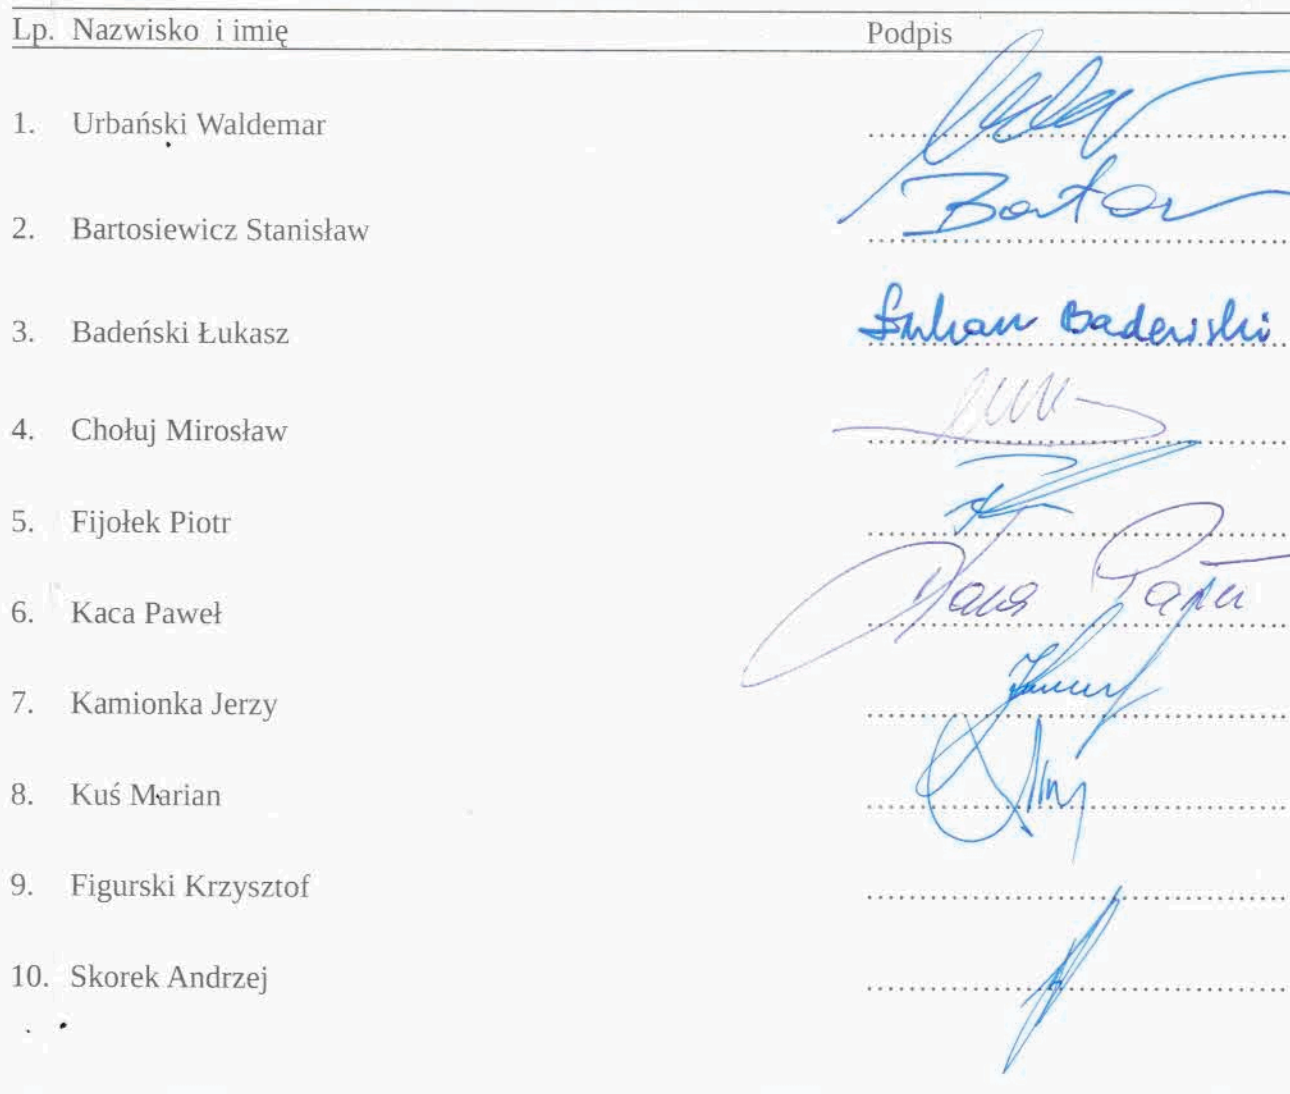 Lp. Nazwisko i imię Podpis
1. Urbański Waldemar
2. Bartosiewicz Stanisław
3. Badeński Łukasz Łukasz Badeński
4. Chołuj Mirosław
5. Fijołek Piotr
6. Kaca Paweł Kaca Paweł
7. Kamionka Jerzy
8. Kuś Marian
9. Figurski Krzysztof
10. Skorek Andrzej